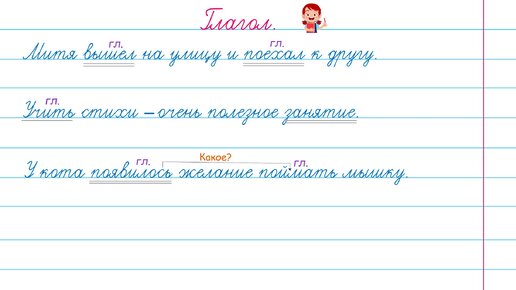 Глагол.
гл. гл.
Митя вышел на улицу и поехал к другу.
гл.
Учить стихи – очень полезное занятие.
Какое?
гл. гл.
У кота появилось желание поймать мышку.